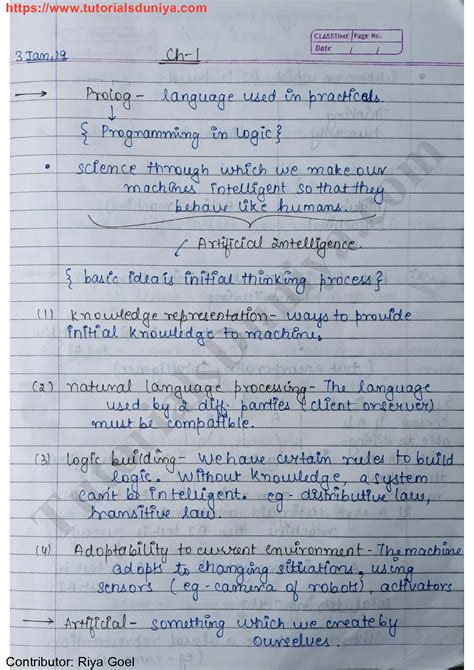 https://www.tutorialsduniya.com
CLASSTIME Page No.
Date / /
3 Jan, 19 Ch-1
→ Prolog - language used in practicals.
↓
{ Programming in logic}
• science through which we make our
machines intelligent so that they
behave like humans.
Artificial Intelligence
{ basic idea is initial thinking process}
(1) Knowledge representation - ways to provide
initial knowledge to machine.
(2) natural language processing - The language
used by 2 diff. parties (client or server)
must be compatible.
(3) logic building - we have certain rules to build
logic. Without knowledge, a system
can't be intelligent. eg - distributive law,
transitive law.
(4) Adoptability to current environment - The machine
adopts to changing situations, using
sensors (eg - camera of robot), activators
→ Artificial - something which we create by
ourselves.
TutorialsDuniya.com
Contributor: Riya Goel